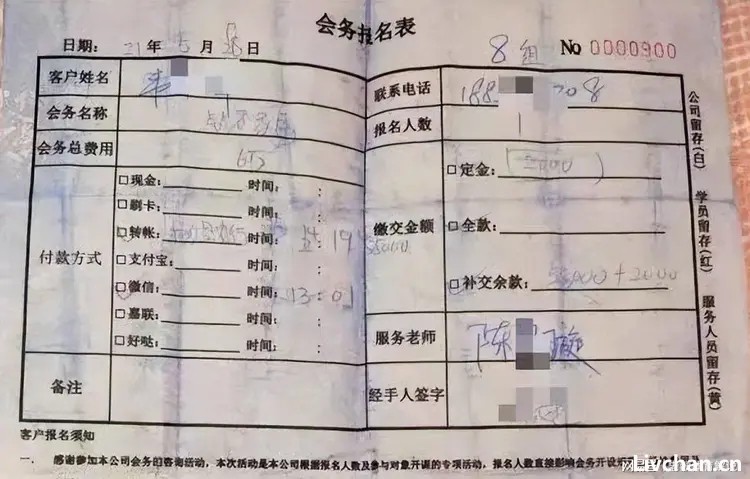 会务报名表
日期: 21年5月 日
8组
No 0000900
客户姓名
联系电话 188 708
会务名称
报名人数 1
会务总费用
付款方式
□现金: 时间: :
□刷卡: 时间: :
□转帐: 时间: 14:19
□支付宝: 时间: :
□微信: 时间: 13:01
□嘉联: 时间: :
□好哒: 时间: :
缴交金额
□定金:
□全款:
□补交余款: +2000
服务老师 陈 璇
备注
经手人签字
公司留存(白) 学员留存(红) 服务人员留存(黄)
客户报名须知
一、 感谢参加本公司会务的咨询活动，本次活动是本公司根据报名人数及参与对象开课的专项活动，报名人数直接影响会务开设
Livchan.cn